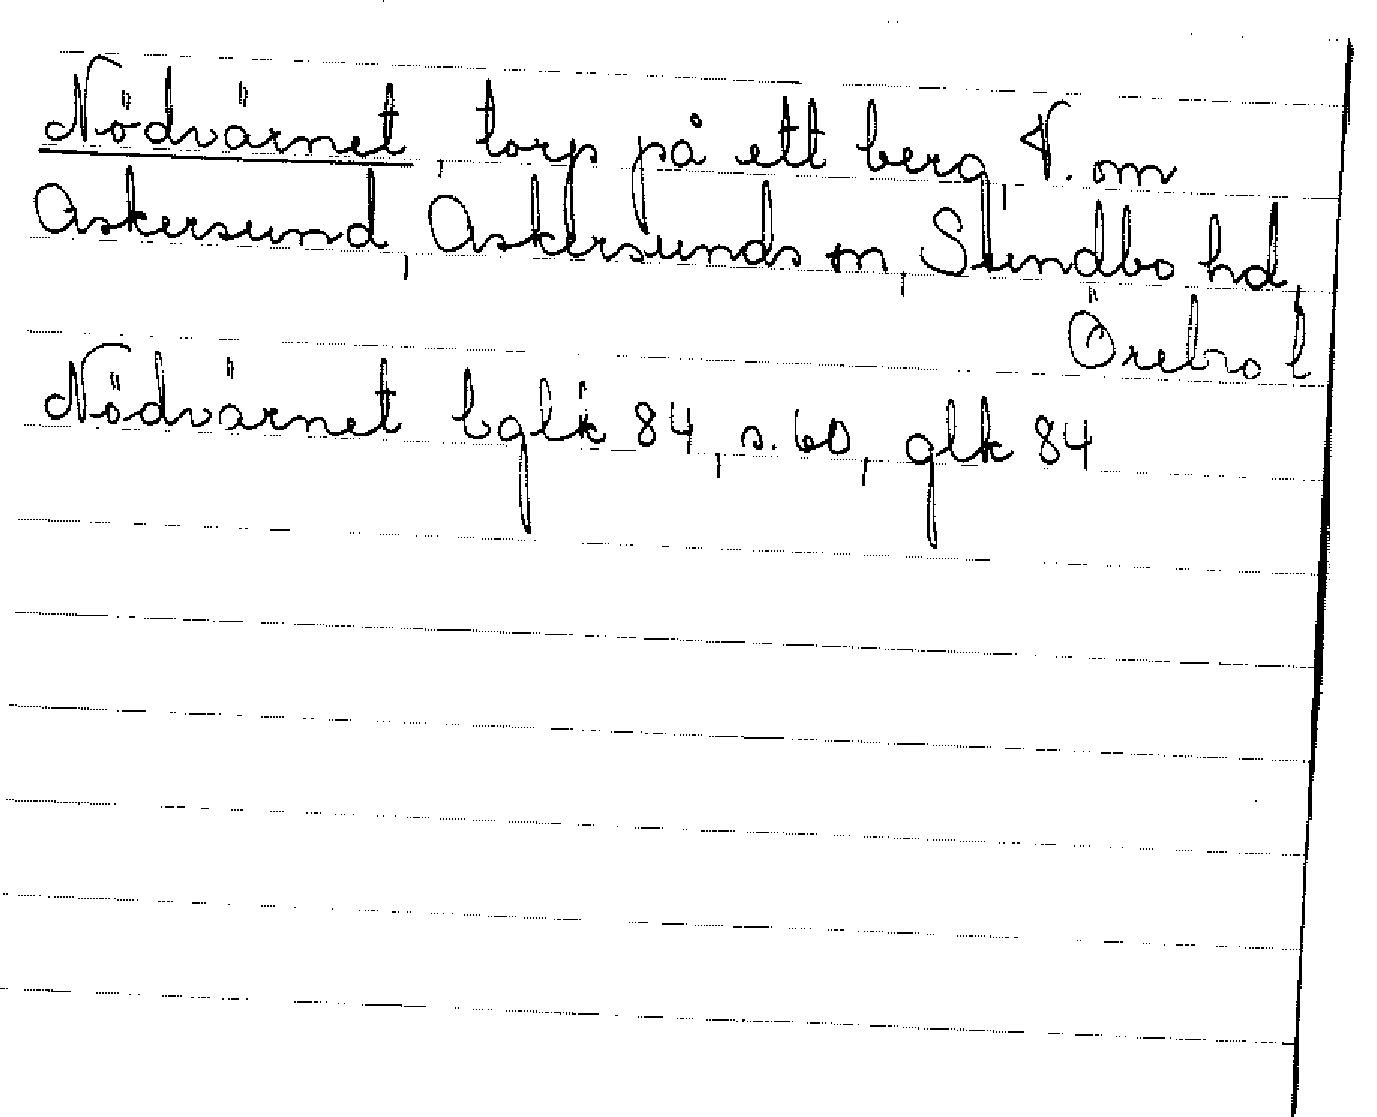 Nödvärnet, torp på ett berg, V. om
Askersund, Askersunds m, Sundbo hd,
Örebro l
Nödvärnet bglk 84, s. 60, glk 84